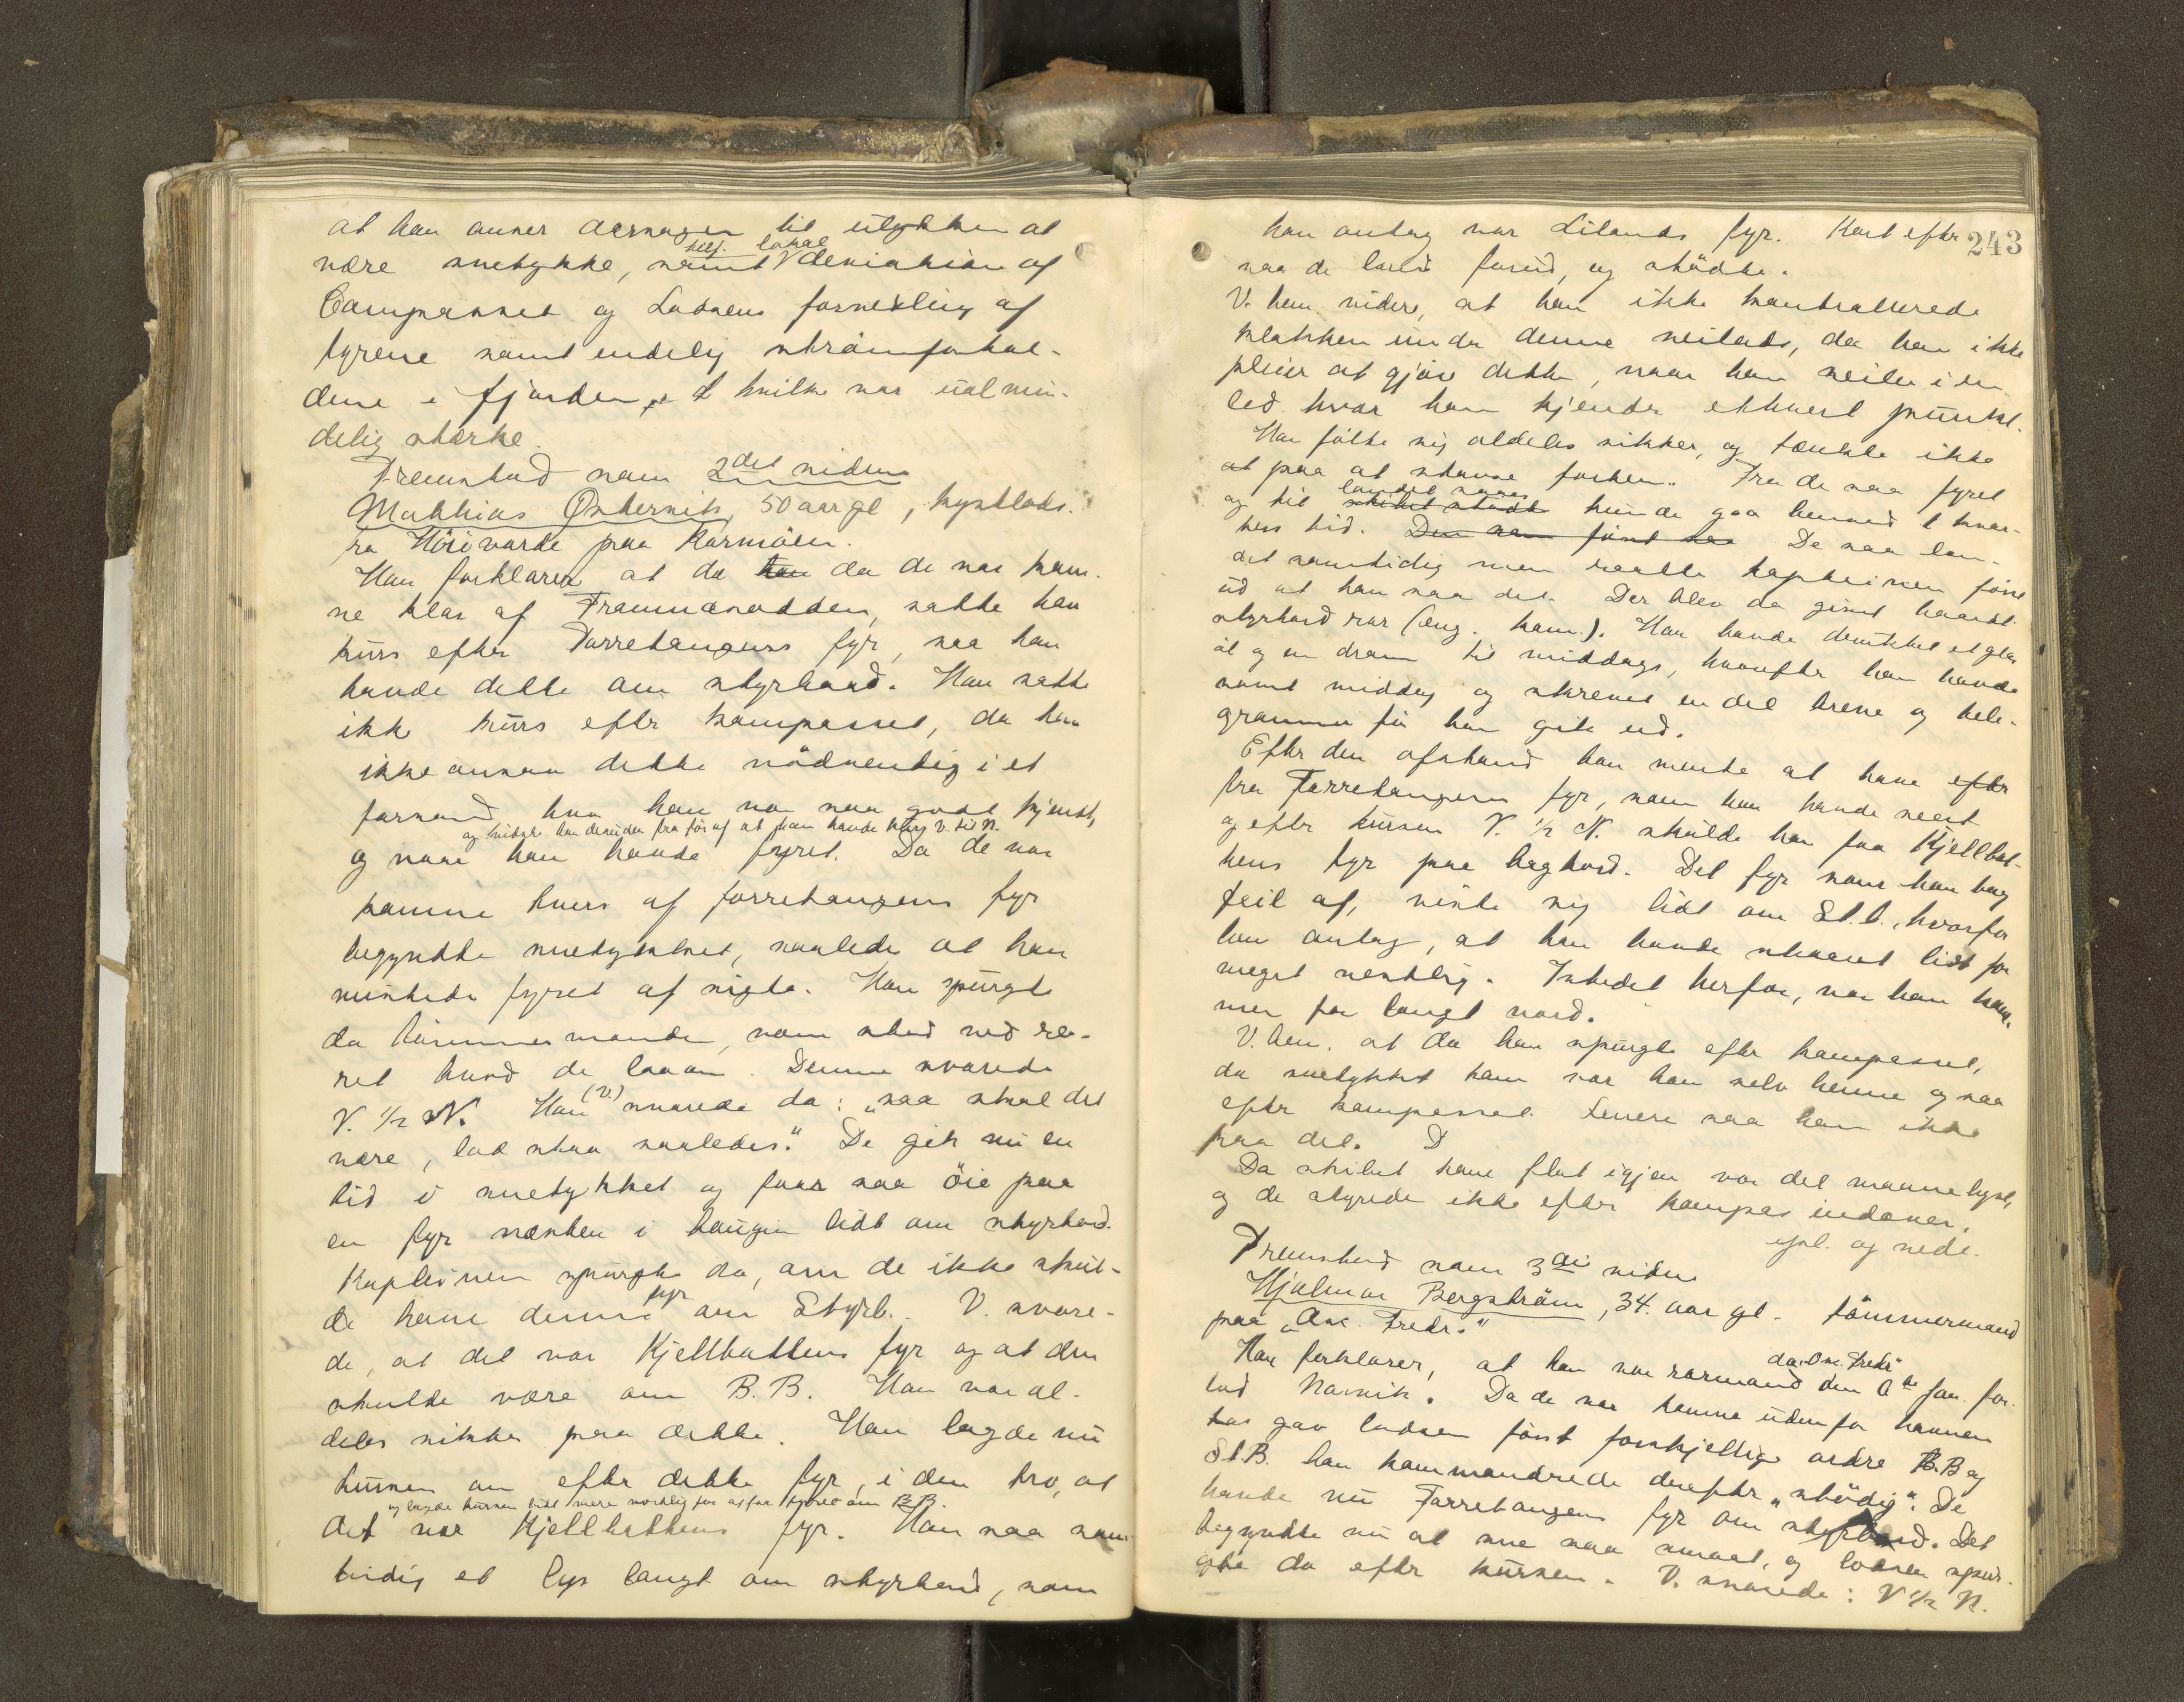 at han anser aarsagen til ulykken at
være snetykke, samt telf. lokal deviation af
Compasset og Lodsens forvexling af
fyrene samt endelig strömforhol-
dene i fjorden, hvilke var ualmin-
delig stærke.
Fremstod som 2det vidne
Mathias Østervik, 50 aar gl, kystlods.
fra Höievarde paa Karmöen.
Han forklarer at da han da de var kom-
ne klar af Framnæsodden, satte han
kurs efter Torretangens fyr, saa han
havde dette om styrbord. Han satte
ikke kurs efter kompasset, da han
ikke ansaa dette nödvendig i et
farvand hvor han var saa godt kjendt,
og vidste han desuden fra för af at han havde kurs V. til N.
og naar han havde fyret. Da de var
komne tvers af Torretangens fyr
begyndte snetykket, saaledes at han
mistede fyret af sigte. Han spurgte
da tömmermanden, som stod ved ro-
ret hvad de laa an. Denne svarede
V. 1/2 N. Han (V.) svarede da: "saa skal det
være, lad staa saaledes." De gik nu en
tid i snetykket og faar saa öie paa
en fyr næsten i baugen lidt om styrbord.
Kapteinen spurgte da, om de ikke skul-
de have denne fyr om Styrb. V. svare-
de, at det var Kjelbottens fyr og at den
skulde være om B.B. Han var al-
deles sikker paa dette. Han lagde nu
kursen om efter dette fyr, i den tro, at
og lagde kursen lidt mere nordlig for at faa fyret om B.B.
det var Kjelbottens fyr. Han saa sam-
tidig et lys langt om styrbord, som
243
han antog var Lilands fyr. Kort efter
saa de land forud, og stödte.
V. bem. videre, at han ikke kontrollerede
klokken under denne seilads, da han ikke
pleier at gjöre dette, naar han seiler i en
led hvor han kjender ethvert punkt.
Han fölte sig aldeles sikker, og tænkte ikke
at paa at stanse farten. Fra de saa fyret
og til skibet stödte landet saaes kunde gaa henved 1 kvar-
ters tid. Den saa först saa De saa lan-
det samtidig men raabte kapteinen först
ud at han saa det. Der blev da givet haardt
styrbord ror (eng. kom.). Han havde drukket et glas
öl og en dram til middags, hvorefter han havde
sovet middag og skrevet en del breve og tele-
grammer för han gik ud.
Efter den afstand han mente at have efter
fra Torretangens fyr, som han havde seet
og efter kursen V. 1/2 N. skulde han faa Kjelbot-
tens fyr paa bagbord. Det fyr som han tog
feil af, viste sig lidt om St.b., hvorfor
han antog, at han havde skaaret lidt for
meget vestlig. Istedet herfor, var han kom-
men for langt nord.
V. bem. at da han spurgte efter kompasset,
da snetykket kom var han selv henne og saa
efter kompasset. Senere saa han ikke
paa det. D
Da skibet kom flot igjen var det maanelyst,
og de styrede ikke efter kompas indover.
Opl. og vedt.
Fremstod som 3die vidne
Hjalmar Bergström, 34. aar gl. tömmermand
paa "Osc. Fredr."
Han forklarer, at han var rormand da "Osc. Fredr" den 6te jan. for-
lod Narvik. Da de var komne udenfor havnen
gav lodsen först forskjellige ordre B.B og
St.B. han kommanderede derefter "stödig". De
havde nu Torretangens fyr om styrbord. Det
begyndte nu at sne saa smaat, og lodsen spur-
gte da efter kursen. V. svarede: V 1/2 N.